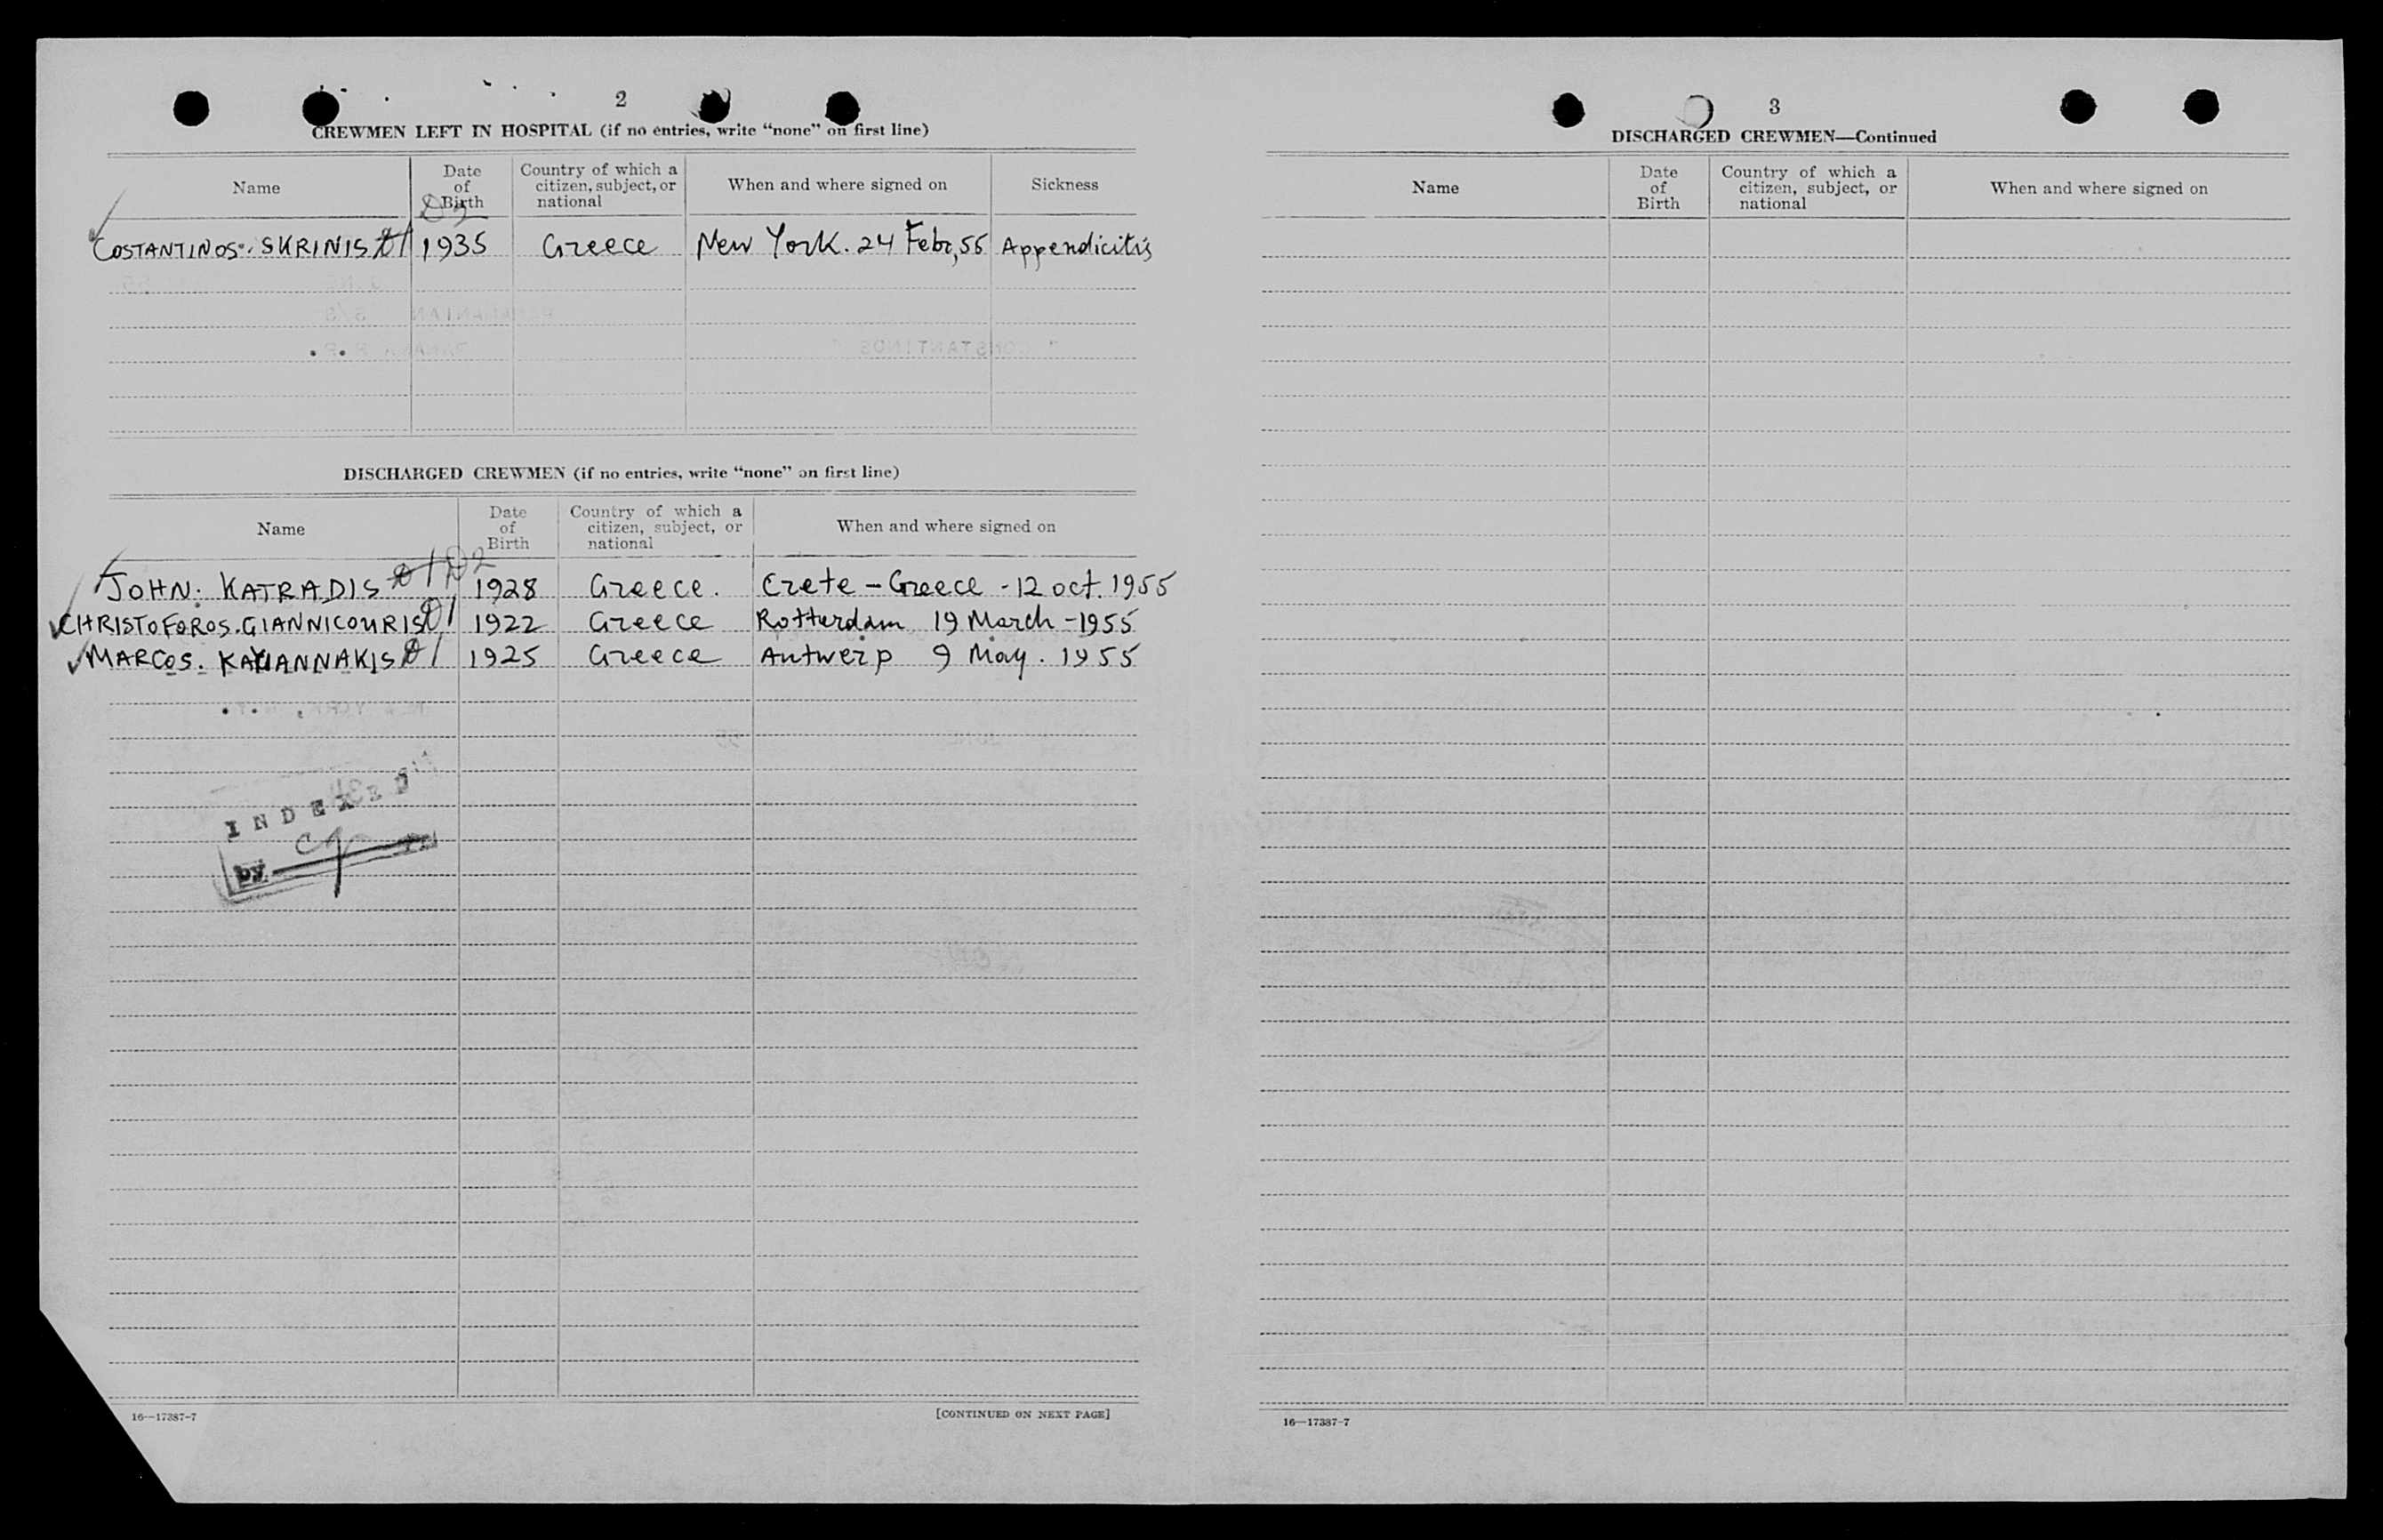 2
CREWMEN LEFT IN HOSPITAL (if no entries, write "none" on first line)
Name
Date of Birth
Country of which a citizen, subject, or national
When and where signed on
Sickness
D2
COSTANTINOS. SKRINIS D1 1935 Greece New York. 24 Febr, 55 Appendicitis
DISCHARGED CREWMEN (if no entries, write "none" on first line)
Name
Date of Birth
Country of which a citizen, subject, or national
When and where signed on
JOHN. KATRADIS D1 D2 1928 Greece. Crete - Greece - 12 oct. 1955
CHRISTOFOROS. GIANNICOURIS D1 1922 Greece Rotterdam 19 March - 1955
MARCOS. D1 1925 Greece Antwerp 9 May. 1955
INDEXED
by
16—17387-7
[CONTINUED ON NEXT PAGE]
3
DISCHARGED CREWMEN—Continued
Name
Date of Birth
Country of which a citizen, subject, or national
When and where signed on
16—17387-7